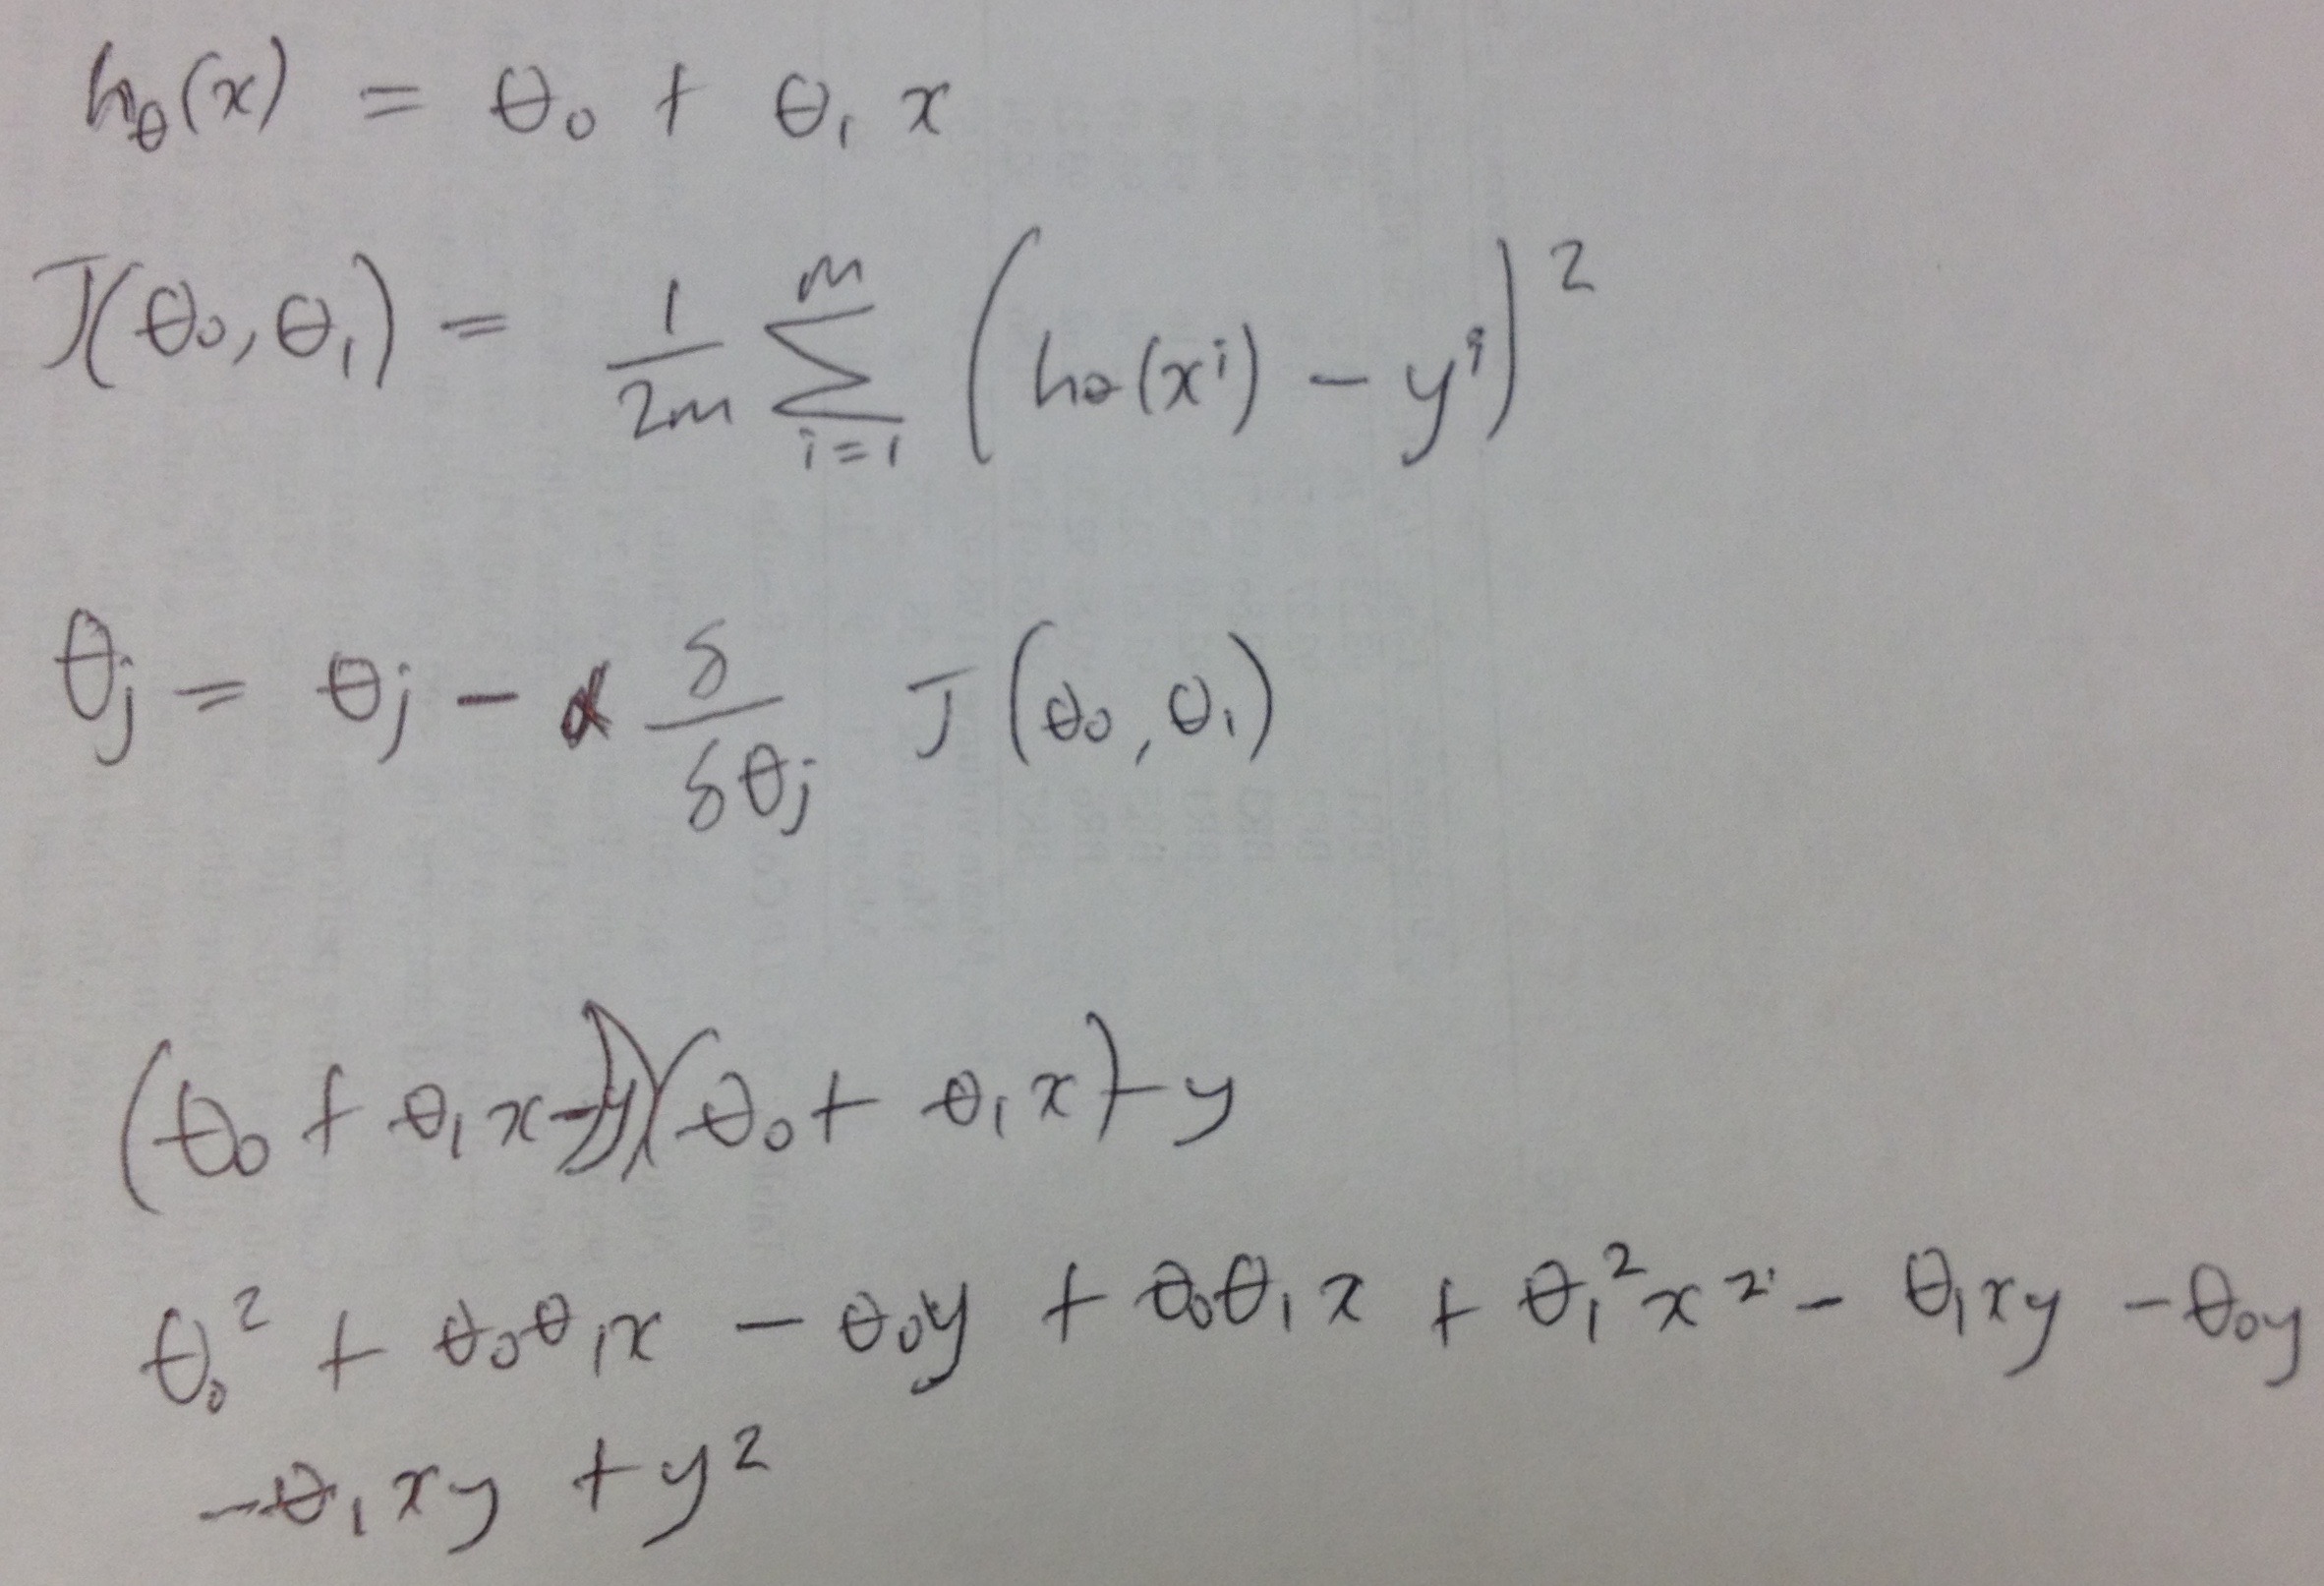 h_θ(x) = θ₀ + θ₁ x
J(θ₀, θ₁) = 1/2m ∑_{i=1}^{m} (h_θ(xⁱ) − yⁱ)²
θⱼ = θⱼ − α δ/δθⱼ J(θ₀, θ₁)
(θ₀ + θ₁x − y)(θ₀ + θ₁x) − y
θ₀² + θ₀θ₁x − θ₀y + θ₀θ₁x + θ₁²x² − θ₁xy − θ₀y
−θ₁xy + y²